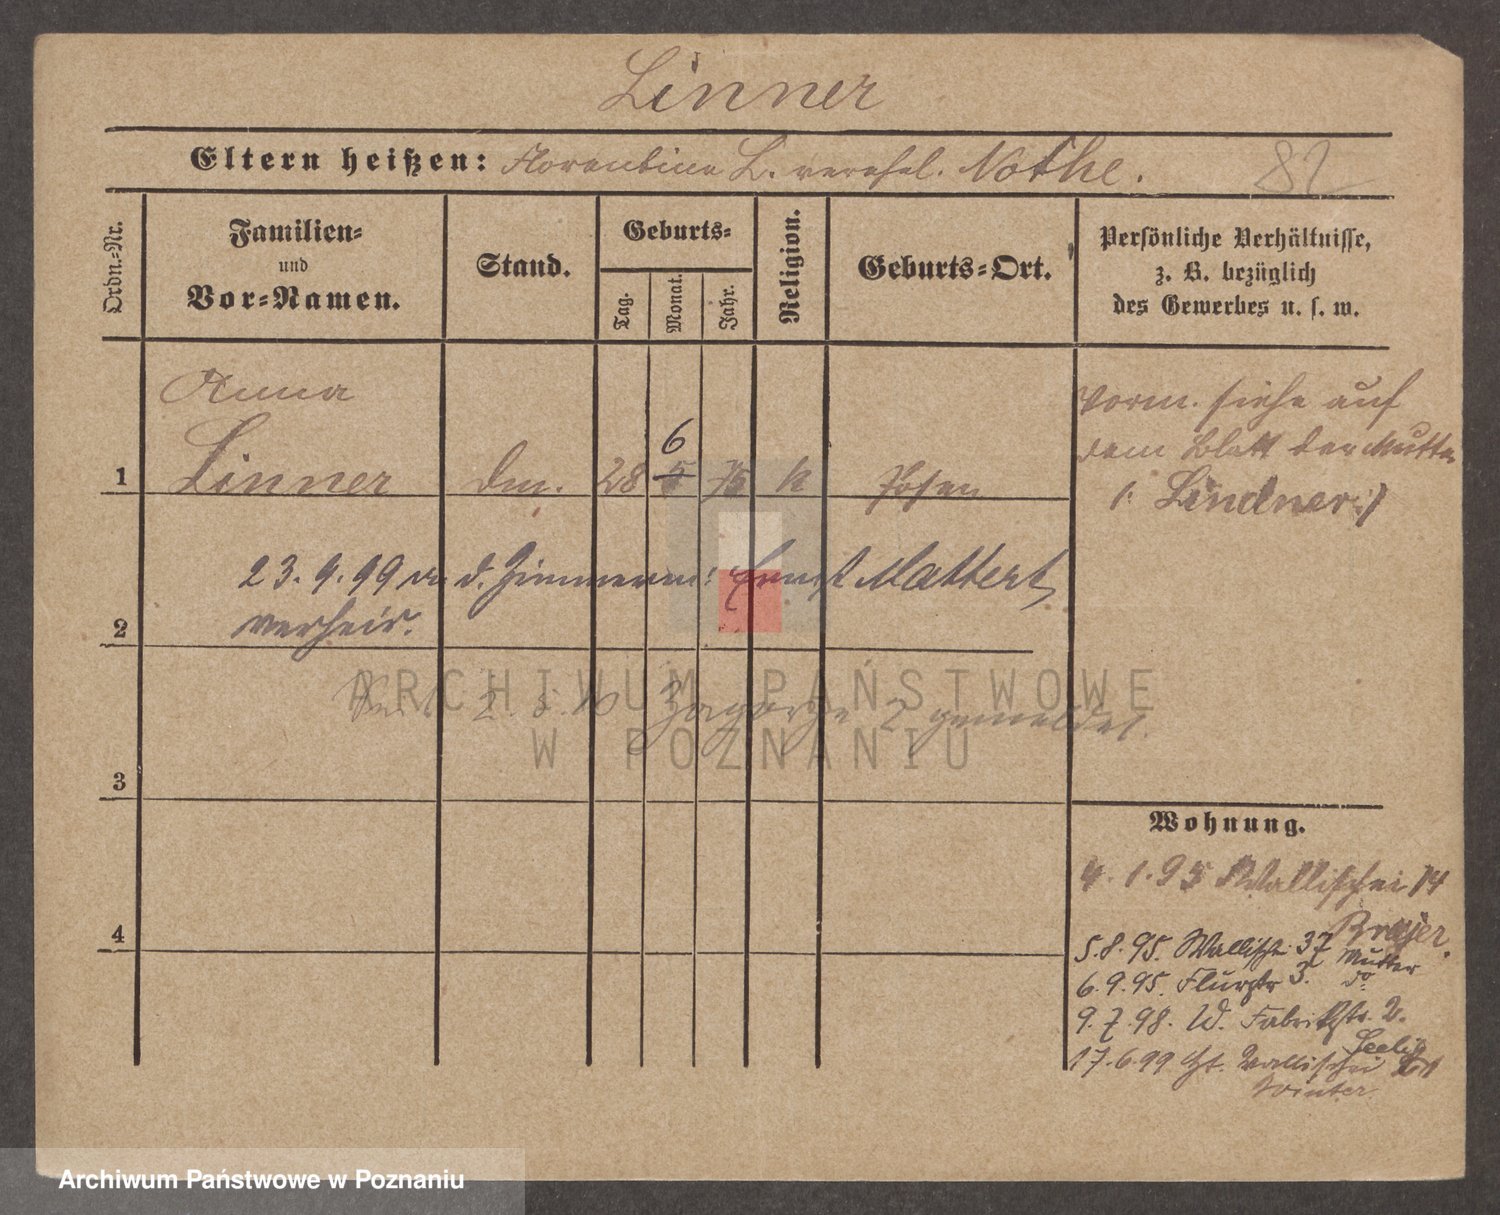 Linner
Eltern heißen: Florentine L. verehel. Nothe.
82
Ordn.-Nr.
Familien-
und
Vor-Namen.
Stand.
Geburts-
Tag.
Monat.
Jahr.
Religion.
Geburts-Ort.
Persönliche Verhältnisse,
z. B. bezüglich
des Gewerbes u. s. w.
Anna
6
1 Linner 28 5 75 k Posen
vorm. siehe auf
dem Blatt der Mutter
/: Lindner :/
23.9.99 d. Zimmerm: Ernst Mattert
2 verheir.
2.5. Zagorze 2 gemeldet.
ARCHIWUM PAŃSTWOWE
W POZNANIU
3
4
Wohnung.
4.1.95 Wallischei 74
Brajer.
5.8.95. Wallisch. 37 Mutter
6.9.95. Flurstr 3. do
9.7.98. W. Fabrikstr. 2.
17.6.99 Wallischei
Winter
Archiwum Państwowe w Poznaniu